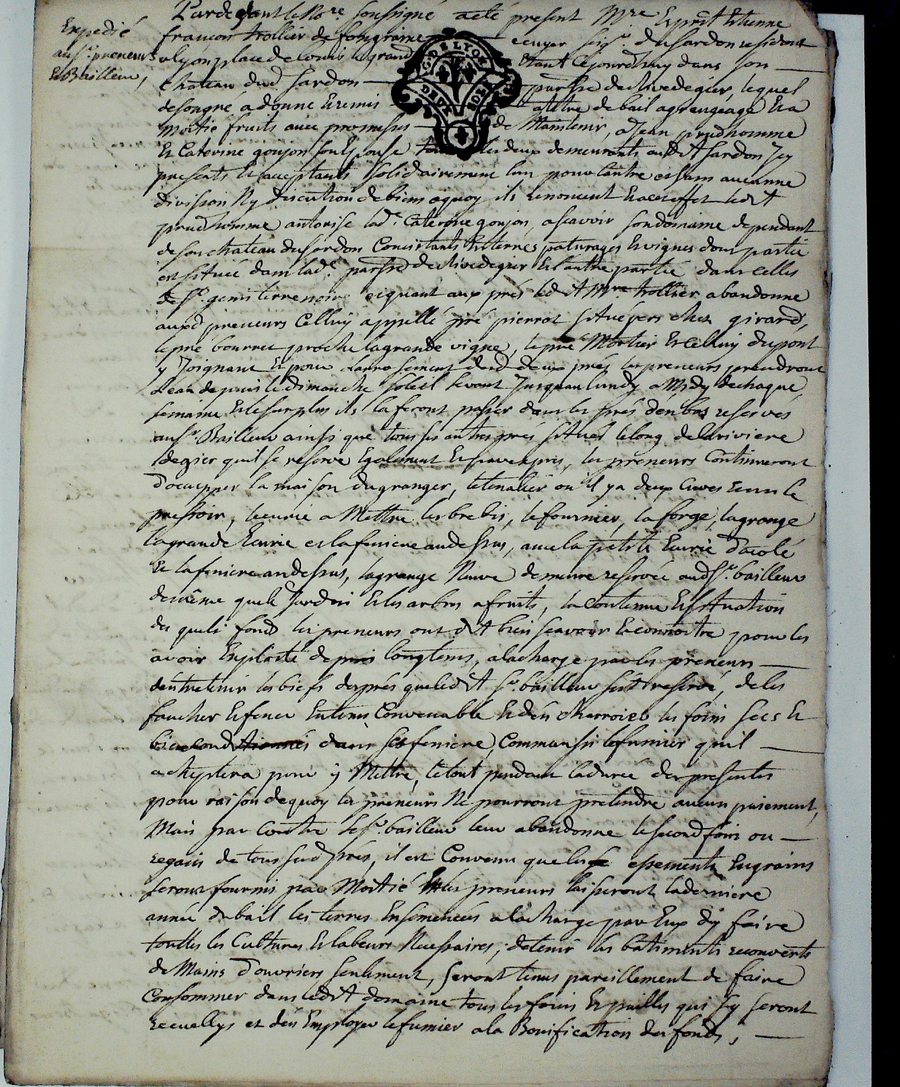 Expedié
au Sr. preneur
Et Bailleur,
Pardevant le Nore. soussigné acté present Mre Esprit Etienne
francois trollier de fongrame ecuyer Seigr. du Sardon resident
a lyon place de Louis le grand Etant cejourdhuy dans son
chateau dud. Sardon parsse de Rivedegier, lequel
de son gre a donné Eremis a titre de bail a grangeage Et a
Moitié fruits avec promesse de Maintenir, a Jean prudhomme
Et Caterine goujon son Epouse tous les deux demeurants audit Sardon Jcy
presents Et acceptants solidairement lun pour lautre et sans aucune
division Ny discution de biens aquoy ils renoncent Eta cet effet ledit
prudhomme autorise lade. Caterine goujon, ascavoir son domaine dependant
de son chateau du Sardon Consistants En terres paturages Et vignes dont partie
est située dans lade. parsse de Rivedegier Et lautre partie dans celles
de St. genis terre noire Et quant aux prés led. Mre trollier abandonne
auxd. preneurs Celluy appellé pré pierrot situé vers chez girard,
le pré bourrut proche la grande vigne, le pré Mortier Et celluy du pont
y Joignant Et pour larrosement desd. deux prés les preneurs prendront
Leau depuis le dimanche soleil levant Jusquau lundy a Midy de chaque
semaine Et le surplus ils la feront passer dans les prés den bas reservés
au Sr. Bailleur ainsi que tous ses autres prés situés le long de la riviere
de gier quil se reserve Egalement Et par exprés, les preneurs Continueront
doccupper la maison du granger, le tenalier ou il y a deux Cuves Et un le
pressoir, lecurie a Mettre les brebis, le fournier, la forge, la grange
la grande Ecurie et la feniere au dessus, avec la petite Ecurie dacolé
Et la feniere au dessus, la grange Neuve demeure reservée aud. Sr. bailleur
de même que le Jardin Et les arbres a fruits, la contenue Et situation
des quels fonds les preneurs ont dit bien scavoir Et connoitre pour les
avoir Exploité depuis longtems, a la charge par les preneurs
dentretenir les biefs des prés que ledit Sr. bailleur sest reservé, de les
faucher Et fener En tems Convenable Et den charroier les foins secs Et
bien conditionnés dans sa feniere, Comme aussi le fumier quil
acheptera pour y Mettre, le tout pendant la durée des presentes
pour raison de quoy les preneurs Ne pourront pretendre aucun paiement,
Mais par Contre le Sr. bailleur leur abandonne le second foin ou
regain de tous sesd. prés, il est Convenu que les ensements En grains
seront fournis par Moitié Et les preneurs laisseront la derniere
année du bail les terres Ensemencées a la charge par Eux dy faire
touttes les Cultures Et labeurs Necessaires, de tenir les batiments recouverts
de Mains douvriers seulement, seront tenus pareillement de faire
Consommer dans ledit domaine tous les foins Et pailles qui sy seront
recuellys et den Employer le fumier a la Bonification des fonds,
G. DE LYON
DEUX SOLS